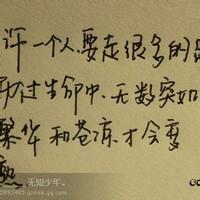 许一个人要走很多的路
历过生命中无数突如
繁华和苍凉才会变
熟
无知少年。